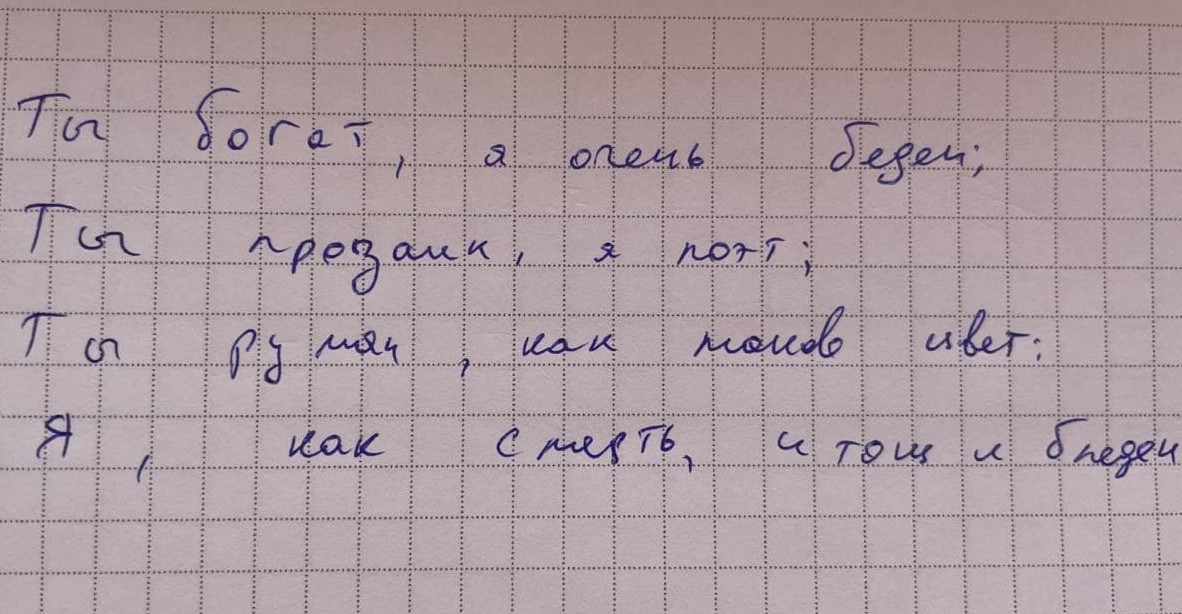 Ты богат, я очень беден;
Ты прозаик, я поэт;
Ты румян, как маков цвет:
Я, как смерть, и тощ и бледен